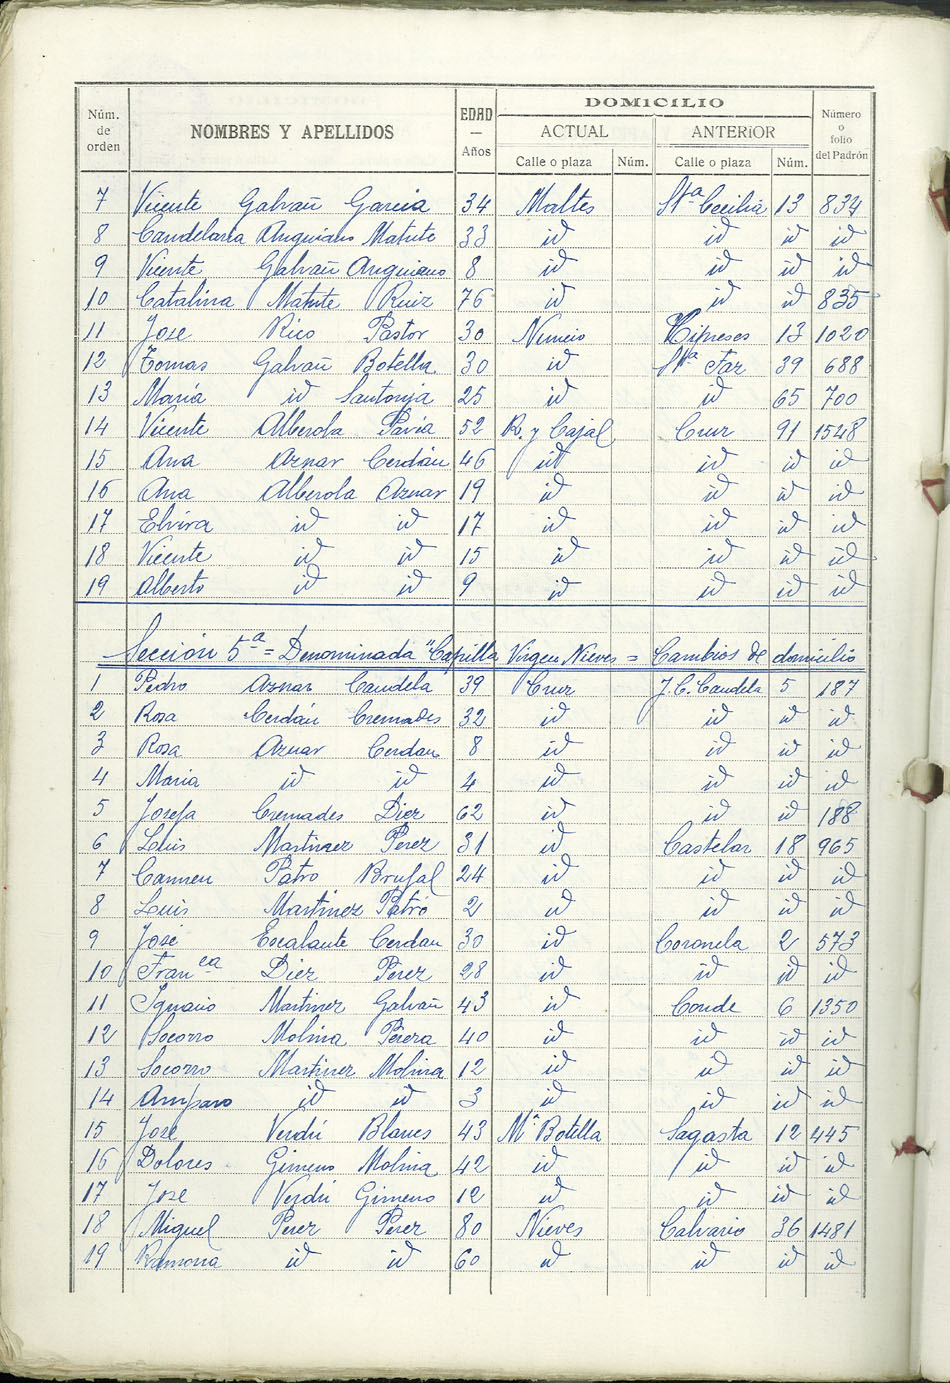 Núm. de orden NOMBRES Y APELLIDOS EDAD — Años DOMICILIO Número o folio del Padrón
ACTUAL ANTERIOR
Calle o plaza Núm. Calle o plaza Núm.
7 Vicente Galvañ Garcia 34 Maltes Sta Cecilia 13 834
8 Candelaria Anguiano Matute 33 id id id id
9 Vicente Galvañ Anguiano 8 id id id id
10 Catalina Matute Ruiz 76 id id id 835
11 Jose Rico Pastor 30 Nuncio Cipreses 13 1020
12 Tomas Galvañ Botella 30 id Sta Faz 39 688
13 María id Santonja 25 id id 65 700
14 Vicente Alberola Pavia 52 R. y Cajal Cruz 91 1548
15 Ana Aznar Cerdán 46 id id id id
16 Ana Alberola Aznar 19 id id id id
17 Elvira id id 17 id id id id
18 Vicente id id 15 id id id id
19 Alberto id id 9 id id id id
Sección 5ª = Denominada "Capilla Virgen Nieves = Cambios de domicilio
1 Pedro Aznar Candela 39 Cruz J. C. Candela 5 187
2 Rosa Cerdán Cremades 32 id id id id
3 Rosa Aznar Cerdan 8 id id id id
4 Maria id id 4 id id id id
5 Josefa Cremades Diez 62 id id id 188
6 Luis Martinez Perez 31 id Castelar 18 965
7 Carmen Patro Brufal 24 id id id id
8 Luis Martinez Patró 2 id id id id
9 José Escalante Cerdan 30 id Coronela 2 573
10 Franca Diez Perez 28 id id id id
11 Ignacio Martinez Galvañ 43 id Conde 6 1350
12 Socorro Molina Pérera 40 id id id id
13 Socorro Martinez Molina 12 id id id id
14 Amparo id id 3 id id id id
15 José Verdú Blanes 43 Mª Botella Sagasta 12 445
16 Dolores Gimeno Molina 42 id id id id
17 Jose Verdú Gimeno 12 id id id id
18 Miguel Perez Perez 80 Nieves Calvario 36 1481
19 Ramona id id 60 id id id id